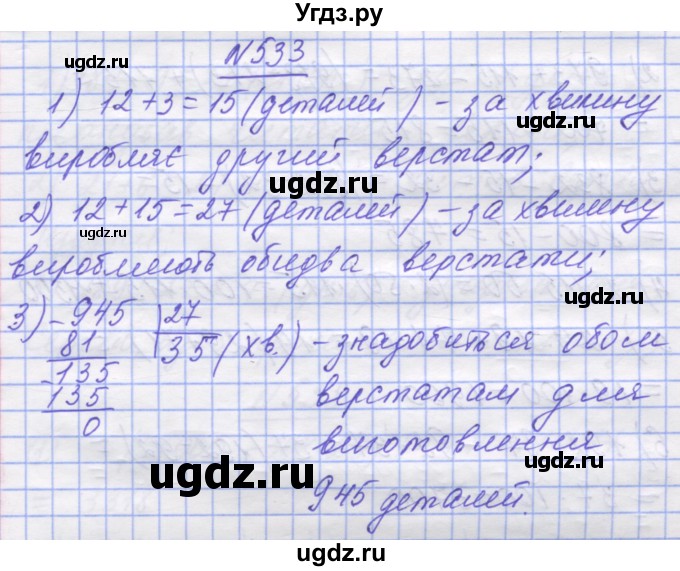 Угдз.ру
N533
1) 12+3=15 (деталей) – за хвилину
виробляє другий верстат;
2) 12+15=27 (деталей) – за хвилину
виробляють обидва верстати;
3) –945 | 27
81 35 (хв.) – знадобиться обом
–135 верстатам для
135 виготовлення
0 945 деталей.
ugdz.ru
ugdz.ru
ugdz.ru
ugdz.ru
ugdz.ru
ugdz.ru
ugdz.ru
ugdz.ru
ugdz.ru